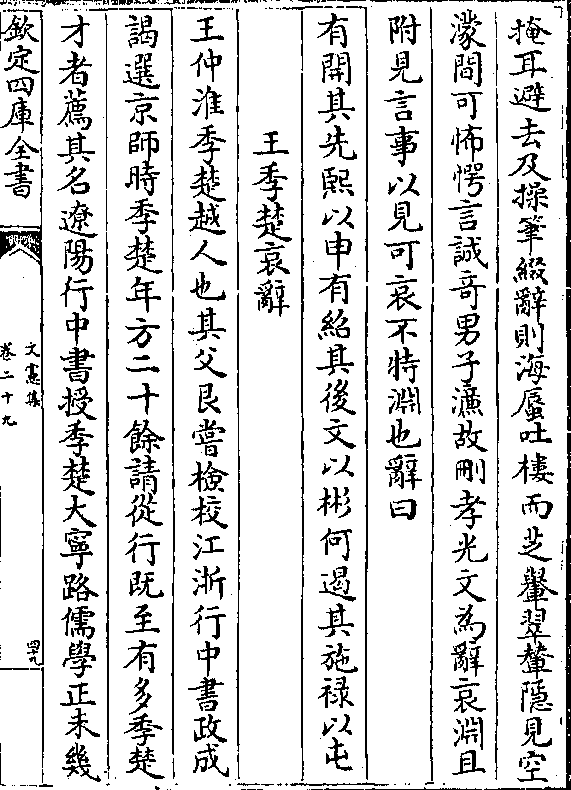 掩耳避去及操筆綴辭則海蜃吐樓而芝轝翠䡯隱見空
濛間可怖愕言誠竒男子濂故刪孝光文為辭哀淵且
附見言事以見可哀不特淵也辭曰
有開其先熙以申有紹其後文以彬何遏其施禄以屯
王季楚哀辭
王仲淮季楚越人也其父艮嘗檢校江浙行中書政成
謁選京師時季楚年方二十餘請從行既至有多季楚
才者薦其名遼陽行中書授季楚大寧路儒學正未幾
欽定四庫全書
文憲集
卷二十九
四九